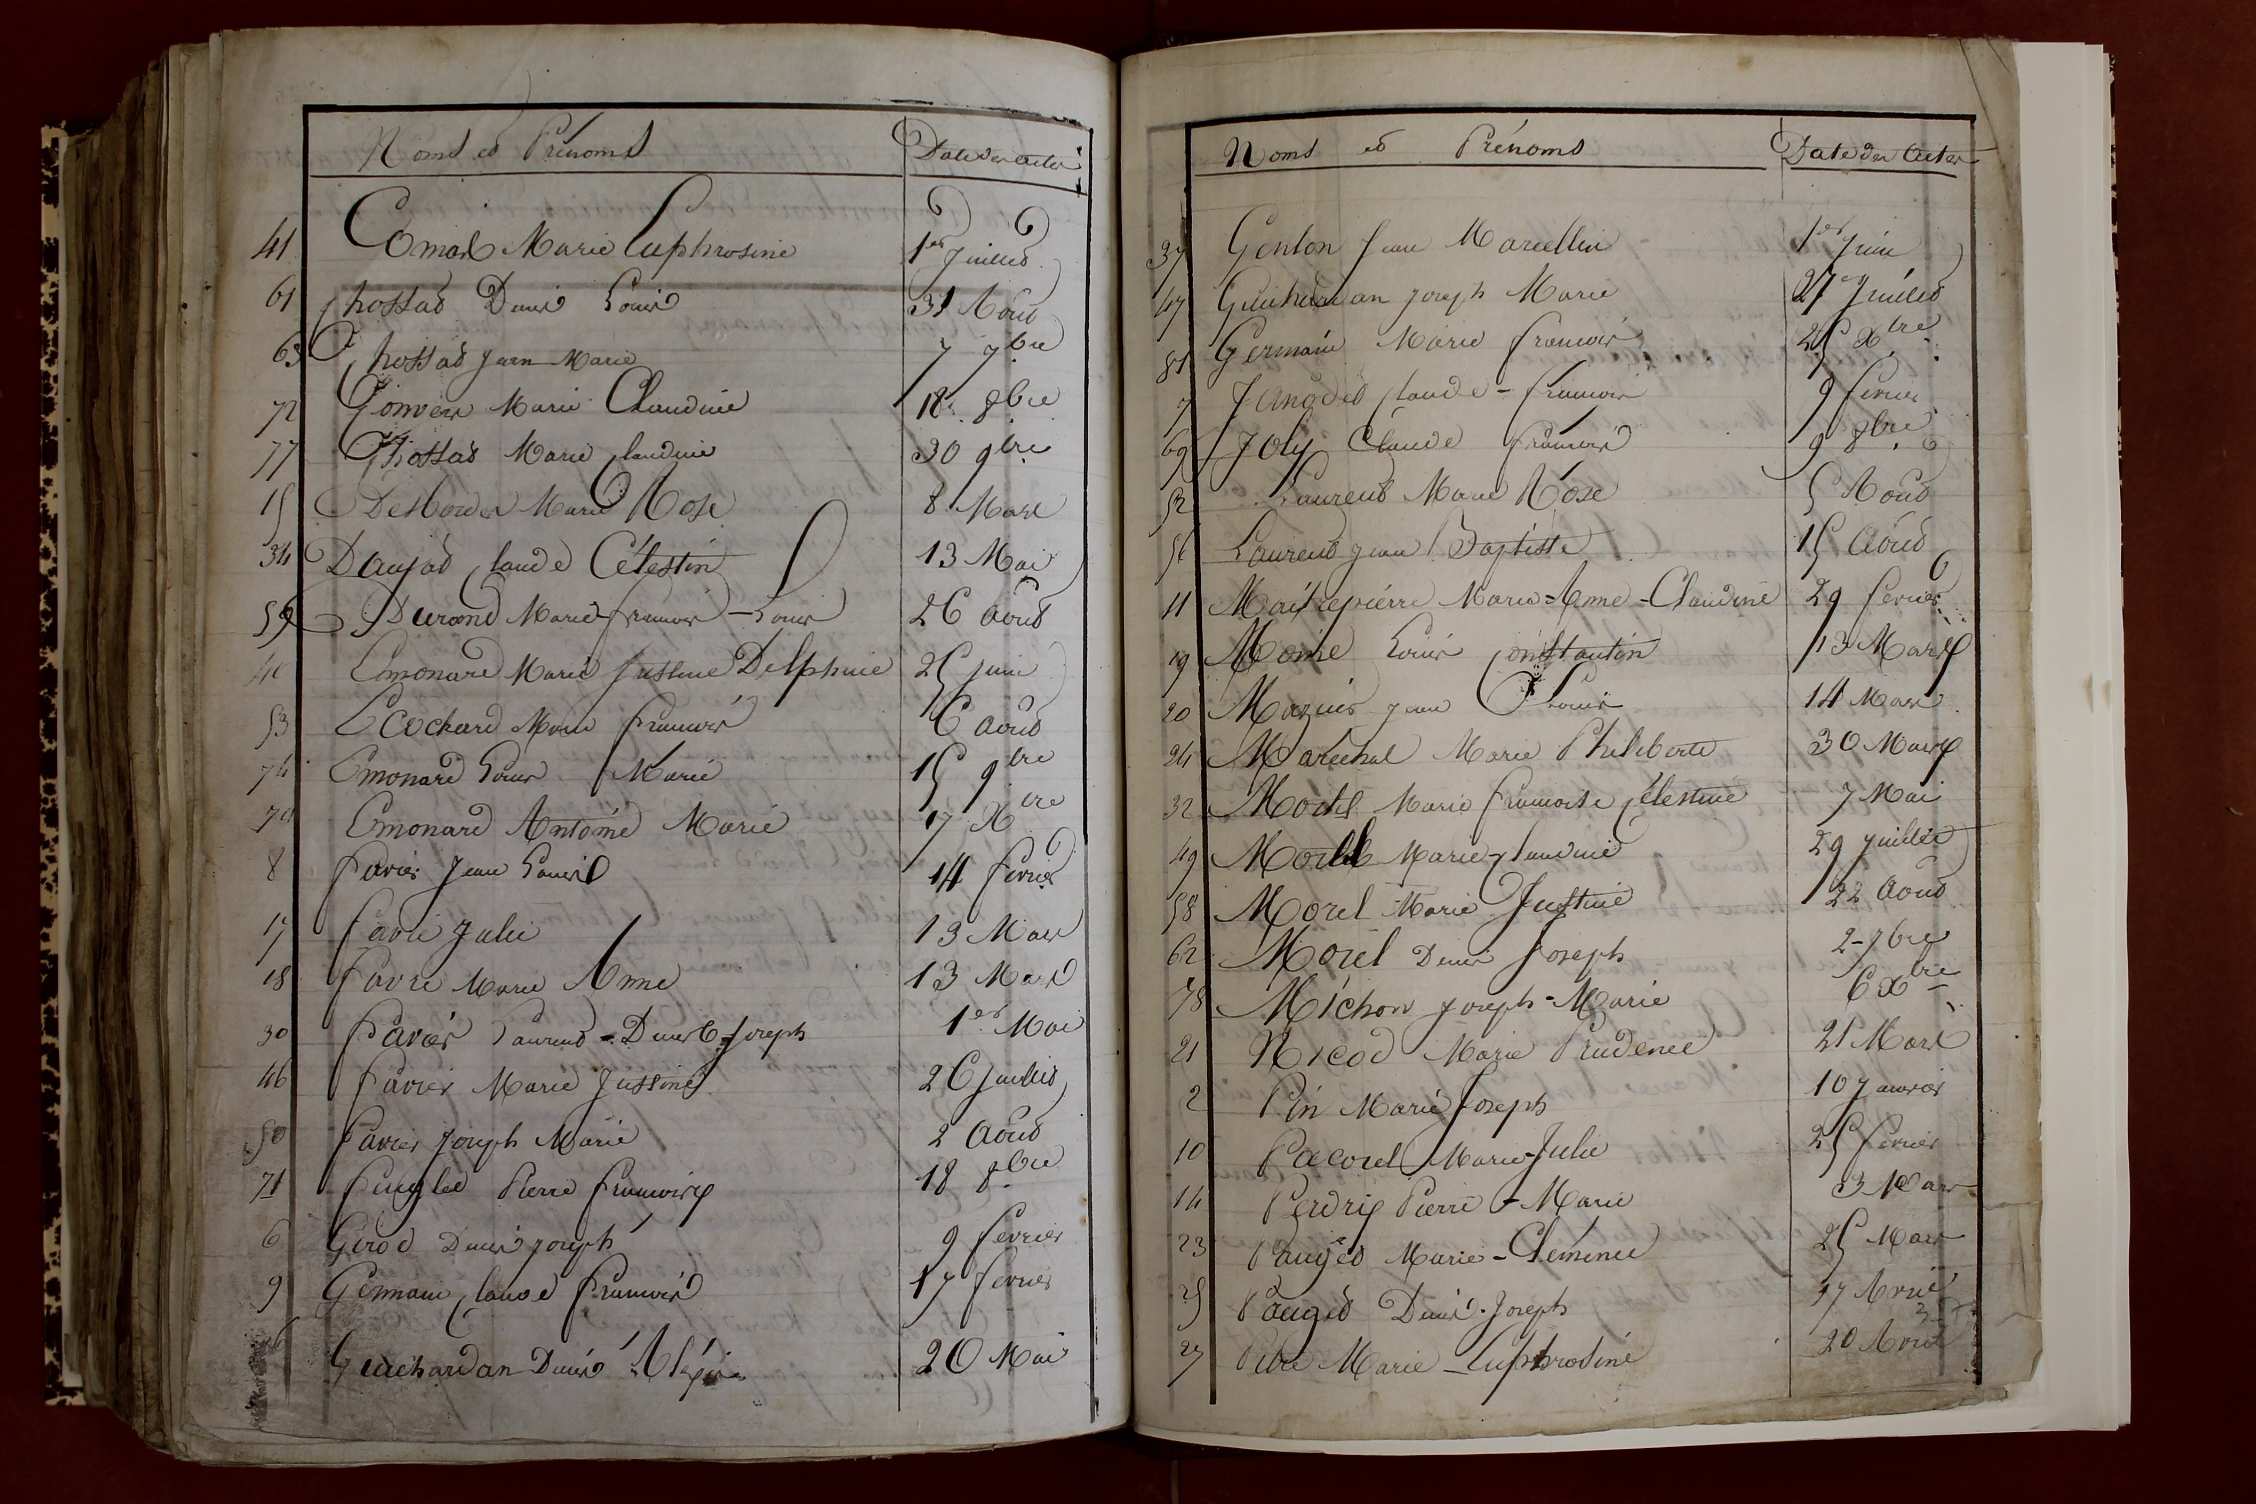 Noms et Prénoms Date des actes
41 Comas Marie Euphrosine 1er Juillet
61 Chossat Denis Louis 31 Aout
63 Chossat Jean Marie 7 7bre
72 Convers Marie Claudine 18 8bre
77 Chossat Marie Claudine 30 9bre
15 Desbordes Marie Rose 8 Mars
34 Daujat Claude Célestin 13 Mai
59 Durand Marie françois Louis 26 Aout
40 Emonard Marie Justine Delphine 25 Juin
53 Ecochard Marie françois 6 Aout
74 Emonard Louis Marie 15 9bre
79 Emonard Antoine Marie 17 Xbre
8 favier Jean Louis 14 fevrier
17 favre Julie 13 Mars
18 favre Marie Anne 13 Mars
30 favier Laurent Denis Joseph 1er Mai
46 favier Marie Justine 26 Juillet
50 favier Joseph Marie 2 Aout
71 Pierre françois 18 8bre
6 Girod Denis Joseph 9 fevrier
9 Germain Claude françois 17 fevrier
Guichardan Denis 20 Mai
Noms et Prénoms Date des Actes
37 Genton Jean Marcellin 1er Juin
47 Guichardan Joseph Marie 27 Juillet
81 Germain Marie françois 25 Xbre
7 Jangot Claude - françois 9 fevrier
69 Joly Claude françois 9 8bre
52 Laurent Marie Rose 5 Aout
56 Laurent Jean Baptiste 15 Aout
11 Maitrepierre Marie-Anne-Claudine 29 fevrier
19 Moine Louis Constantin 13 Mars
20 Mazuis Jean Louis 14 Mars
24 Maréchal Marie Philiberte 30 Mars
32 Morel Marie françoise Célestine 7 Mai
49 Morel Marie Claudine 29 Juillet
58 Morel Marie Justine 22 Aout
62 Morel Denis Joseph 2 7bre
78 Michon Joseph-Marie 6 Xbre
21 Nicod Marie Prudence 21 Mars
2 Pin Marie Joseph 10 Janvier
10 Pacorel Marie Julie 25 fevrier
14 Perdrix Pierre - Marie 3 Mars
23 Pauget Marie-Clémence 25 Mars
25 Pauget Denis Joseph 17 Avril
27 Marie Euphrosine 20 Avril